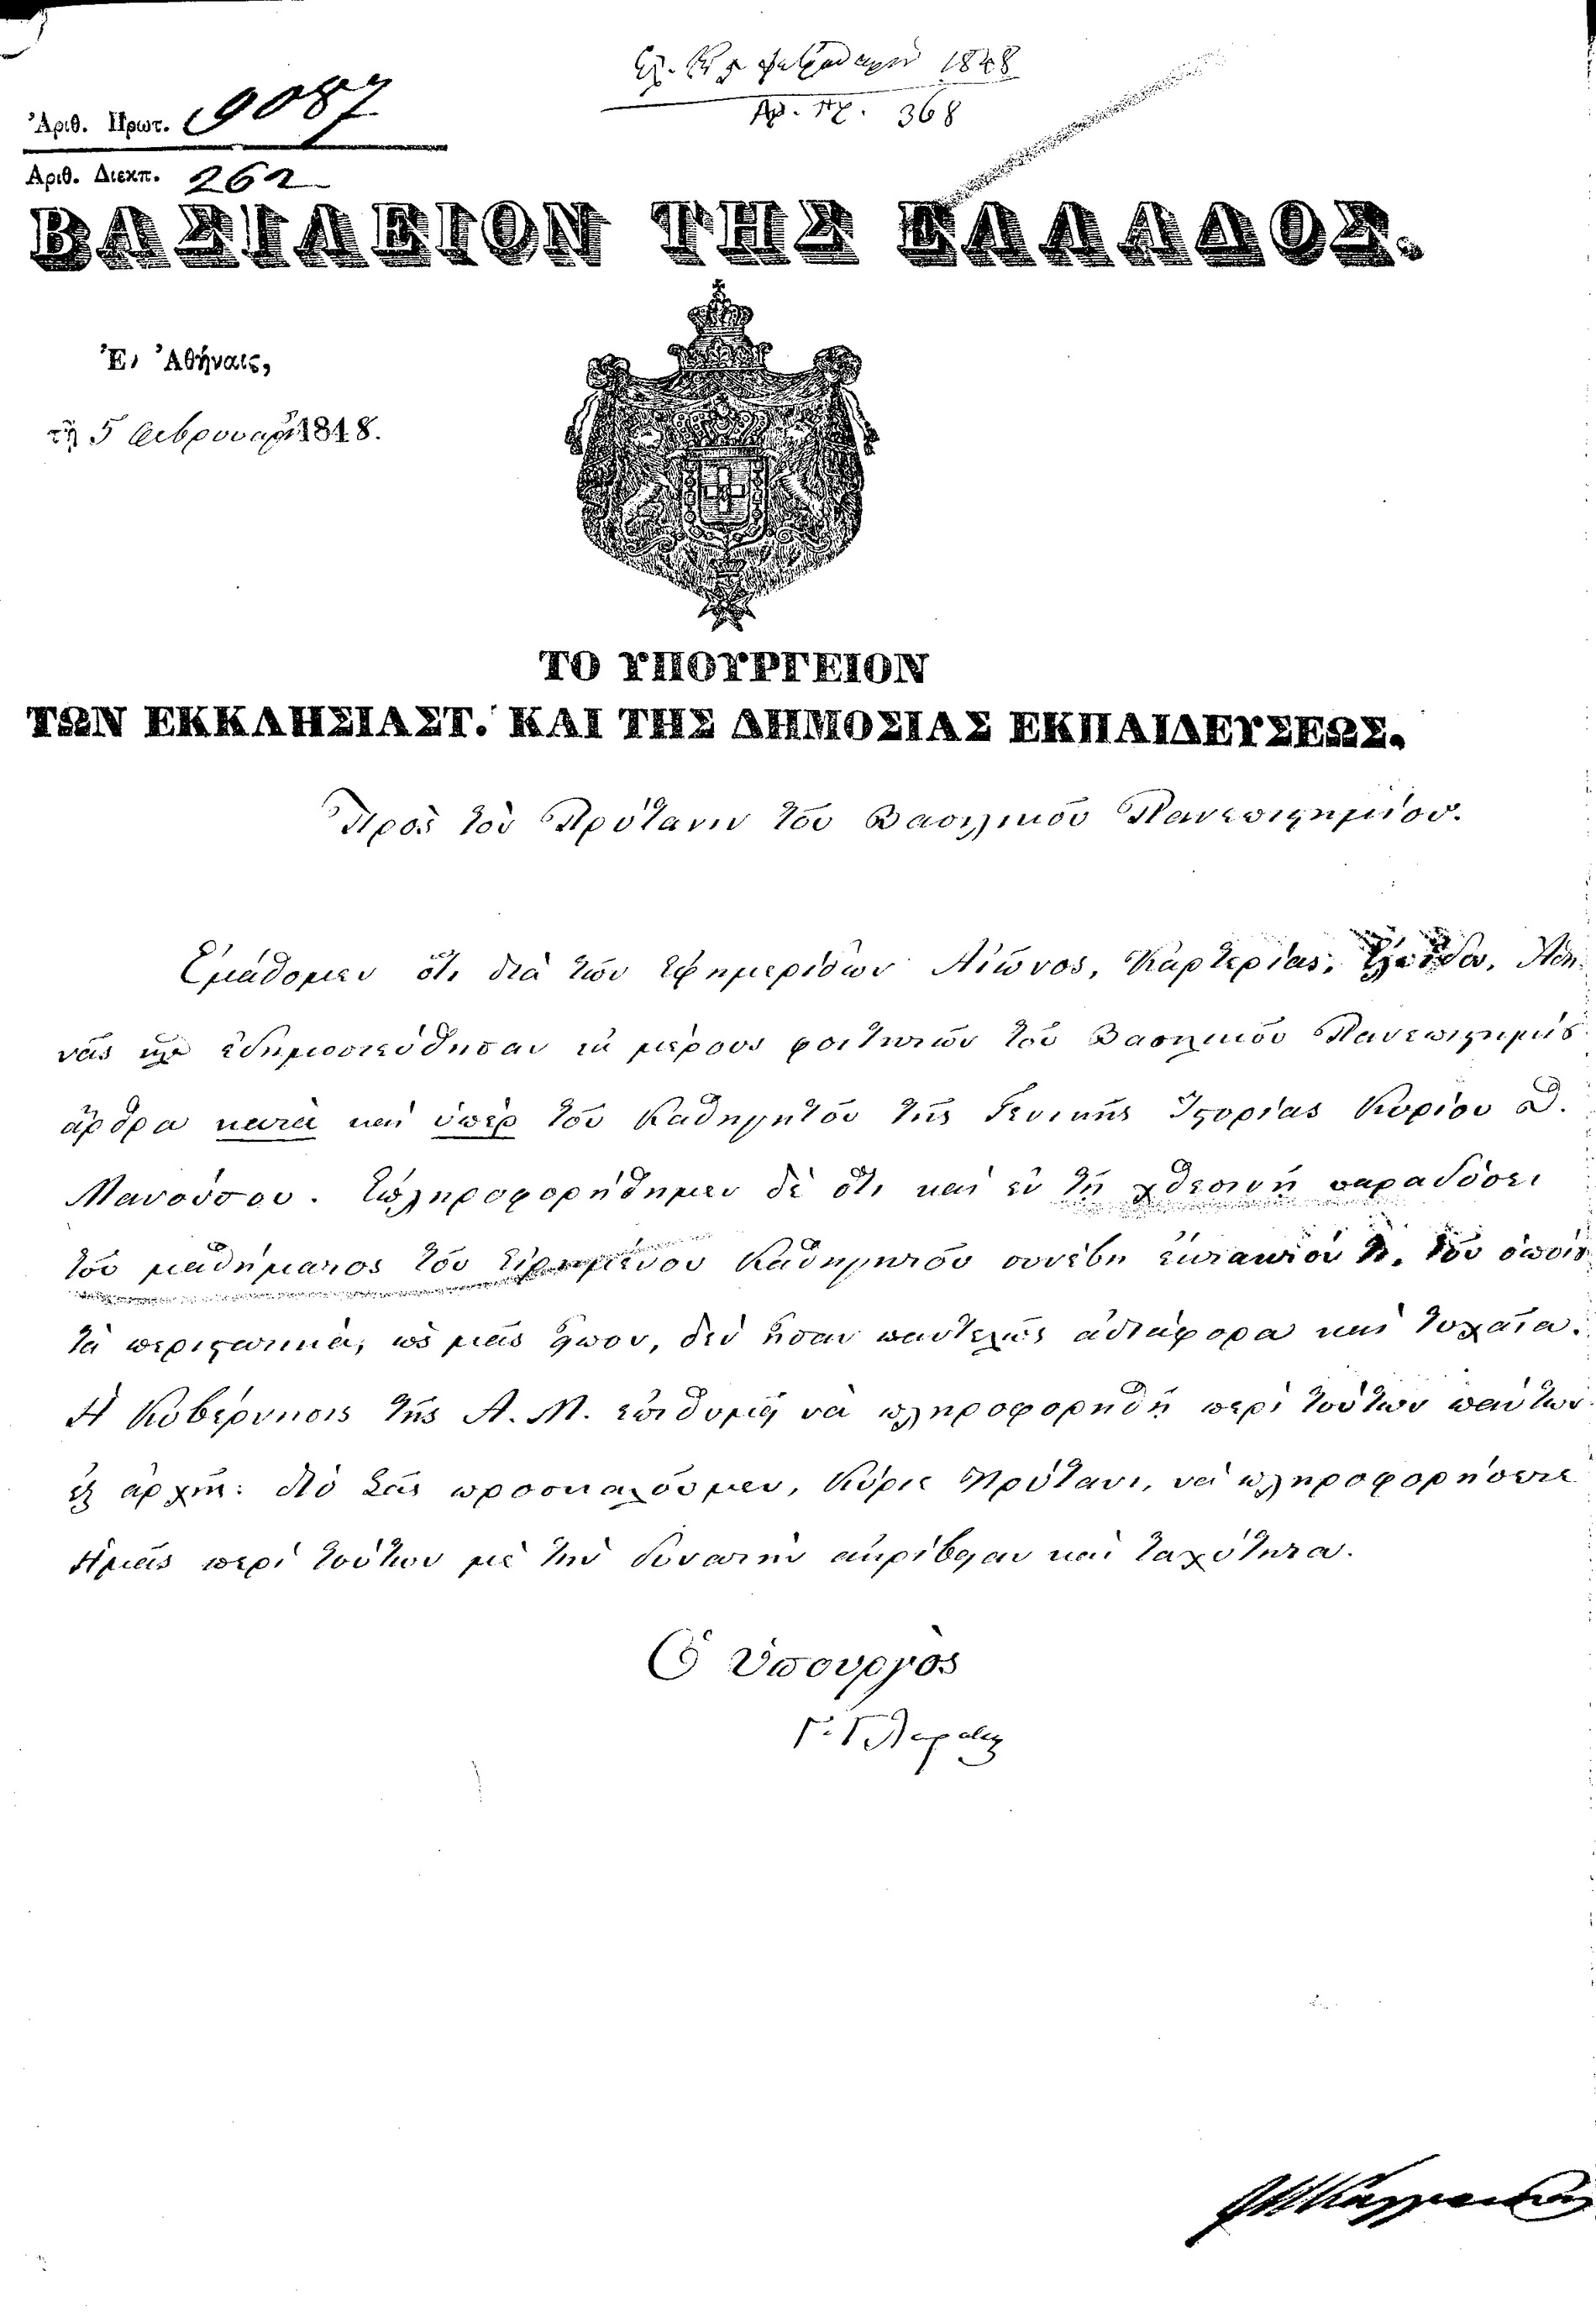 1848
Ἀριθ. Πρωτ. 9087
Αρ. Πρ. 368
Αριθ. Διεκπ. 262
ΒΑΣΙΛΕΙΟΝ ΤΗΣ ΕΛΛΑΔΟΣ.
Ἐν Ἀθήναις,
τῇ 5 Φεβρουαρ. 1848.
ΤΟ ΥΠΟΥΡΓΕΙΟΝ
ΤΩΝ ΕΚΚΛΗΣΙΑΣΤ. ΚΑΙ ΤΗΣ ΔΗΜΟΣΙΑΣ ΕΚΠΑΙΔΕΥΣΕΩΣ.
Πρὸς τὸν Πρύτανιν τοῦ Βασιλικοῦ Πανεπιστημίου.
Ἐμάθομεν ὅτι διὰ τῶν ἐφημερίδων Αἰῶνος, Καρτερίας, Ἐλπίδος, Ἀθη-
νᾶς κλ ἐδημοσιεύθησαν ἐκ μέρους φοιτητῶν τοῦ Βασιλικοῦ Πανεπιστημίου
ἄρθρα κατὰ καὶ ὑπὲρ τοῦ Καθηγητοῦ τῆς Γενικῆς Ἱστορίας Κυρίου Θ.
Μανούσου. Ἐπληροφορήθημεν δὲ ὅτι καὶ ἐν τῇ χθεσινῇ παραδόσει
τοῦ μαθήματος τοῦ εἰρημένου Καθηγητοῦ συνέβη ἔκτακτόν τι, τοῦ ὁποίου
τὰ περιστατικὰ, ὡς μᾶς εἶπον, δὲν ἦσαν παντελῶς ἀδιάφορα καὶ τυχαῖα.
Ἡ Κυβέρνησις τῆς Α. Μ. ἐπιθυμεῖ νὰ πληροφορηθῇ περὶ τούτων πάντων
ἐξ ἀρχῆς· διὸ Σᾶς προσκαλοῦμεν, Κύριε Πρύτανι, νὰ πληροφορήσετε
Ἡμᾶς περὶ τούτων μὲ τὴν δυνατὴν ἀκρίβειαν καὶ ταχύτητα.
Ὁ ὑπουργὸς
Γ. Γλαράκης